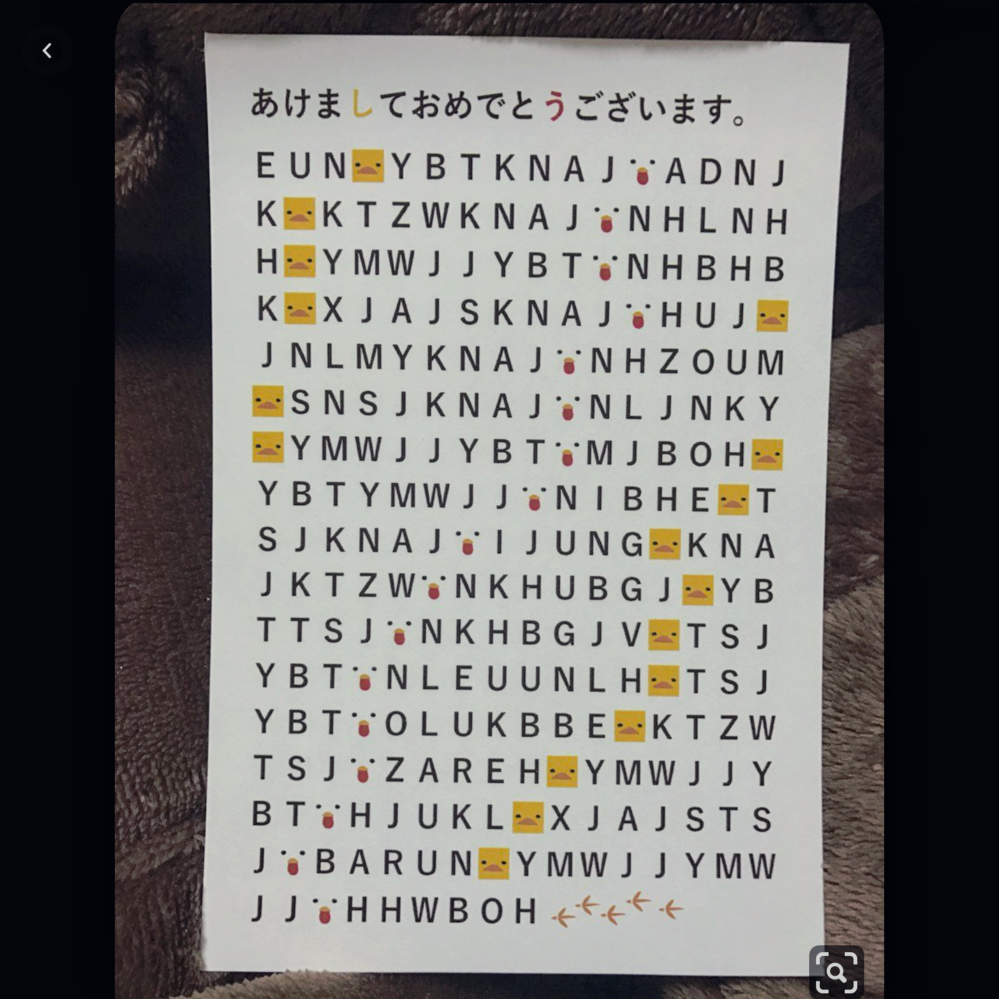 あけましておめでとうございます。
E U N Y B T K N A J A D N J
K K T Z W K N A J N H L N H
H Y M W J J Y B T N H B H B
K X J A J S K N A J H U J
J N L M Y K N A J N H Z O U M
S N S J K N A J N L J N K Y
Y M W J J Y B T M J B O H
Y B T Y M W J J N I B H E T
S J K N A J I J U N G K N A
J K T Z W N K H U B G J Y B
T T S J N K H B G J V T S J
Y B T N L E U U N L H T S J
Y B T O L U K B B E K T Z W
T S J Z A R E H Y M W J J Y
B T H J U K L X J A J S T S
J B A R U N Y M W J J Y M W
J J H H W B O H